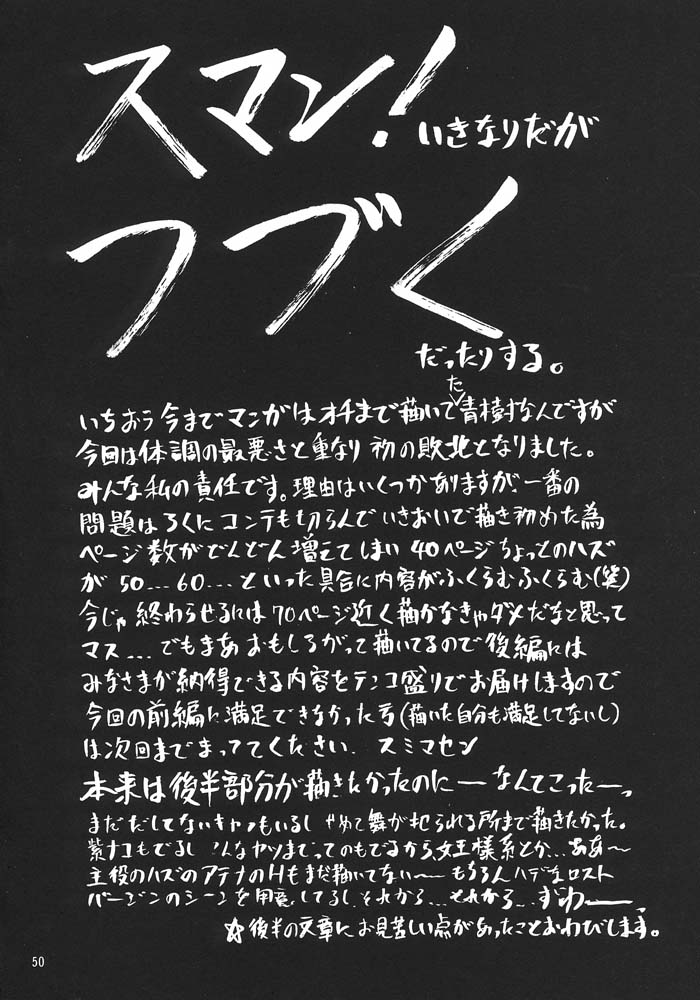 スマン! いきなりだが
つづく
だったりする。
いちおう 今までマンガはオチまで描いてた青樹村なんですが
今回は体調の最悪さと重なり 初の敗北となりました。
みんな私の責任です。理由はいくつかありますが一番の
問題はろくにコンテも切らんでいきおいで描き初めた為
ページ数がどんどん増えてしまい 40ページちょっとのハズ
が 50... 60... といった具合に内容がふくらむふくらむ(笑)
今じゃ 終わらせるには 70ページ近く描かなきゃダメだなと思って
マス... でもまあ おもしろがって描いてるので 後編には
みなさまが納得できる内容をテンコ盛りでお届けしますので
今回の前編に満足できなかった方(描いた自分も満足してないし)
は次回までまっててください. スミマセン
本来は後半部分が描きたかったのにーなんてこったーっ
まだだしてないキャラもいるし せめて舞が犯られる所まで描きたかった。
紫ナコもでるし こんなヤツまでってのもでるから女王様系とか...ああ〜
主役のハズのアテナのHもまだ描いてない〜 もちろんハデなロスト
バージンのシーンを用意してるし それから... それから... ずわーーっ
☆後半の文章にお見苦しい点があったことおわびします。
50